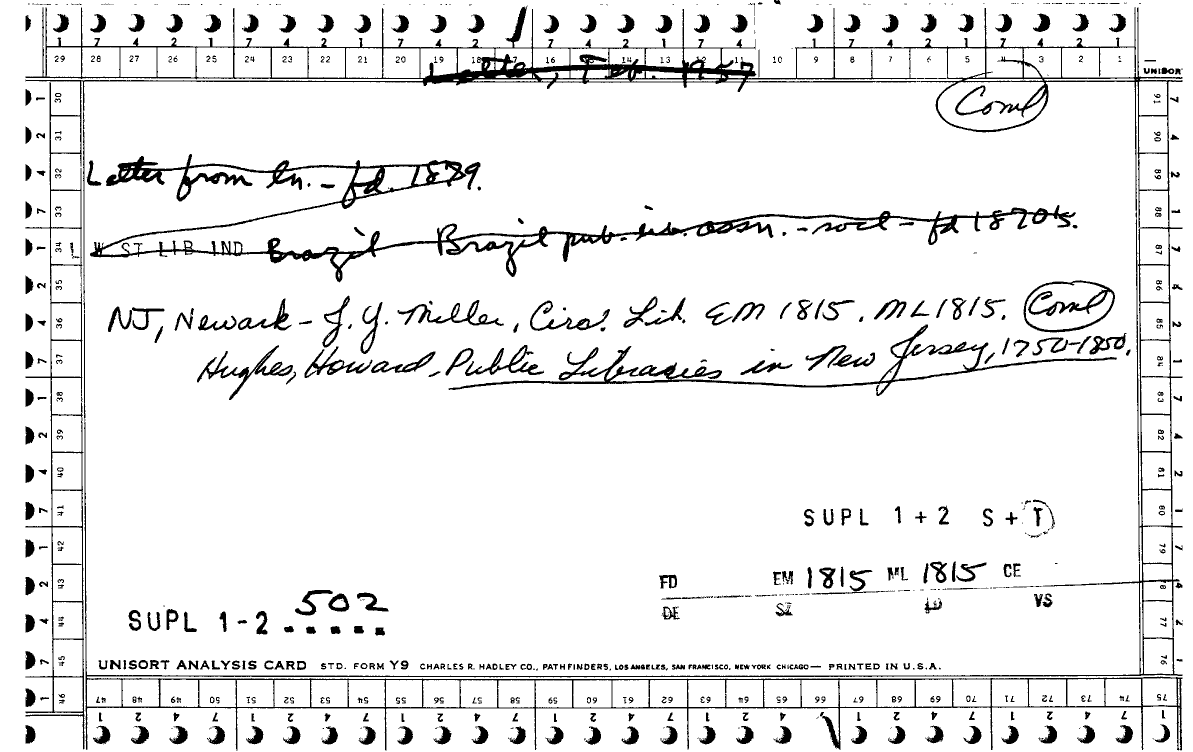 1 7 4 2 1 7 4 2 1 7 4 2 1 7 4 2 1 7 4 2 1 7 4 2 1 7 4 2 1
29 28 27 26 25 24 23 22 21 20 19 18 17 16 15 14 13 12 11 10 9 8 7 6 5 4 3 2 1
Letter, Feb. 1957
UNISORT
Coml
Letter from ln. - fd. 1879.
W ST LIB IND Brazil Brazil pub. lib. assn. - socl - fd 1870's.
NJ, Newark - J. Y. Miller, Circ. Lib. EM 1815. ML 1815. Coml
Hughes, Howard. Public Libraries in New Jersey, 1750-1850.
SUPL 1+2 S+T
FD EM 1815 ML 1815 CE
DE SZ LD VS
SUPL 1-2 502
UNISORT ANALYSIS CARD STD. FORM Y9 CHARLES R. HADLEY CO., PATHFINDERS, LOS ANGELES, SAN FRANCISCO, NEW YORK CHICAGO— PRINTED IN U.S.A.
47 48 49 50 51 52 53 54 55 56 57 58 59 60 61 62 63 64 65 66 67 68 69 70 71 72 73 74 75
1 2 4 7 1 2 4 7 1 2 4 7 1 2 4 7 1 2 4 7 1 2 4 7 1 2 4 7 1
30 31 32 33 34 35 36 37 38 39 40 41 42 43 44 45 46
91 90 89 88 87 86 85 84 83 82 81 80 79 78 77 76